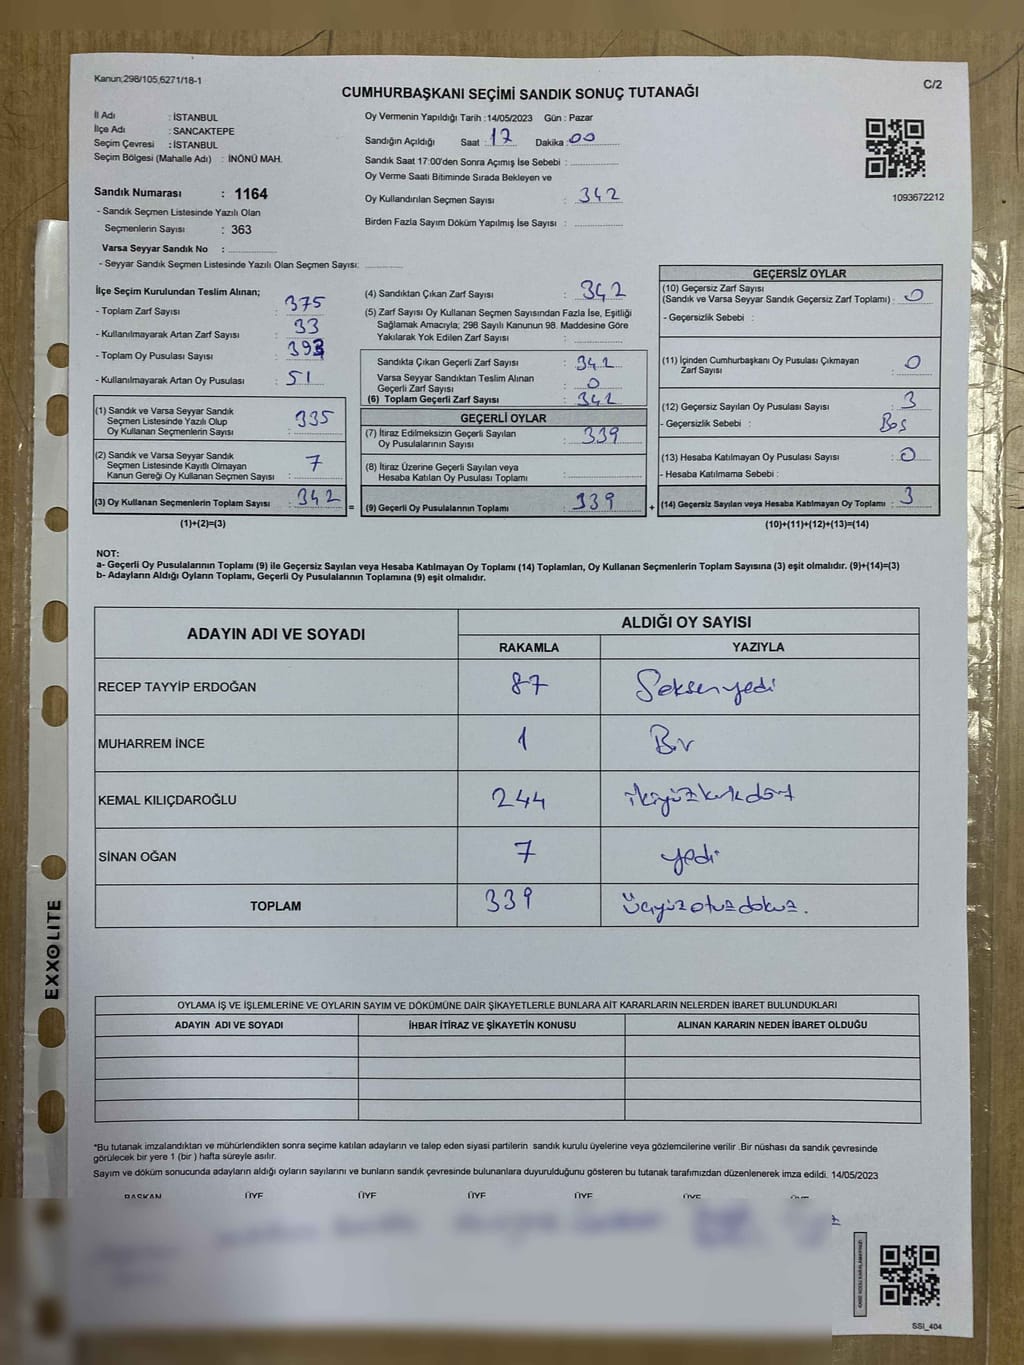 Kanun,298/105,6271/18-1
C/2
CUMHURBAŞKANI SEÇİMİ SANDIK SONUÇ TUTANAĞI
İl Adı : İSTANBUL
İlçe Adı : SANCAKTEPE
Seçim Çevresi : İSTANBUL
Seçim Bölgesi (Mahalle Adı) : İNÖNÜ MAH.
Sandık Numarası : 1164
- Sandık Seçmen Listesinde Yazılı Olan
Seçmenlerin Sayısı : 363
Varsa Seyyar Sandık No :
- Seyyar Sandık Seçmen Listesinde Yazılı Olan Seçmen Sayısı:
Oy Vermenin Yapıldığı Tarih :14/05/2023 Gün : Pazar
Sandığın Açıldığı Saat : 17 Dakika : 00
Sandık Saat 17:00'den Sonra Açımış İse Sebebi :
Oy Verme Saati Bitiminde Sırada Bekleyen ve
Oy Kullandırılan Seçmen Sayısı : 342
Birden Fazla Sayım Döküm Yapılmış İse Sayısı :
1093672212
İlçe Seçim Kurulundan Teslim Alınan;
- Toplam Zarf Sayısı : 375
- Kullanılmayarak Artan Zarf Sayısı : 33
- Toplam Oy Pusulası Sayısı : 393
- Kullanılmayarak Artan Oy Pusulası : 51
(1) Sandık ve Varsa Seyyar Sandık
Seçmen Listesinde Yazılı Olup
Oy Kullanan Seçmenlerin Sayısı : 335
(2) Sandık ve Varsa Seyyar Sandık
Seçmen Listesinde Kayıtlı Olmayan
Kanun Gereği Oy Kullanan Seçmen Sayısı : 7
(3) Oy Kullanan Seçmenlerin Toplam Sayısı : 342
(1)+(2)=(3)
=
(4) Sandıktan Çıkan Zarf Sayısı : 342
(5) Zarf Sayısı Oy Kullanan Seçmen Sayısından Fazla İse, Eşitliği
Sağlamak Amacıyla; 298 Sayılı Kanunun 98. Maddesine Göre
Yakılarak Yok Edilen Zarf Sayısı :
Sandıkta Çıkan Geçerli Zarf Sayısı : 342
Varsa Seyyar Sandıktan Teslim Alınan
Geçerli Zarf Sayısı : 0
(6) Toplam Geçerli Zarf Sayısı : 342
GEÇERLİ OYLAR
(7) İtiraz Edilmeksizin Geçerli Sayılan
Oy Pusulalarının Sayısı : 339
(8) İtiraz Üzerine Geçerli Sayılan veya
Hesaba Katılan Oy Pusulası Toplamı :
(9) Geçerli Oy Pusulalarının Toplamı : 339
+
GEÇERSİZ OYLAR
(10) Geçersiz Zarf Sayısı
(Sandık ve Varsa Seyyar Sandık Geçersiz Zarf Toplamı) : 0
- Geçersizlik Sebebi :
(11) İçinden Cumhurbaşkanı Oy Pusulası Çıkmayan
Zarf Sayısı : 0
(12) Geçersiz Sayılan Oy Pusulası Sayısı : 3
- Geçersizlik Sebebi : Boş
(13) Hesaba Katılmayan Oy Pusulası Sayısı : 0
- Hesaba Katılmama Sebebi :
(14) Geçersiz Sayılan veya Hesaba Katılmayan Oy Toplamı : 3
(10)+(11)+(12)+(13)=(14)
NOT:
a- Geçerli Oy Pusulalarının Toplamı (9) ile Geçersiz Sayılan veya Hesaba Katılmayan Oy Toplamı (14) Toplamları, Oy Kullanan Seçmenlerin Toplam Sayısına (3) eşit olmalıdır. (9)+(14)=(3)
b- Adayların Aldığı Oyların Toplamı, Geçerli Oy Pusulalarının Toplamına (9) eşit olmalıdır.
ADAYIN ADI VE SOYADI
ALDIĞI OY SAYISI
RAKAMLA YAZIYLA
RECEP TAYYİP ERDOĞAN 87 Seksenyedi
MUHARREM İNCE 1 Bir
KEMAL KILIÇDAROĞLU 244 ikiyüzkırkdört
SİNAN OĞAN 7 yedi
TOPLAM 339 Üçyüzotuzdokuz.
OYLAMA İŞ VE İŞLEMLERİNE VE OYLARIN SAYIM VE DÖKÜMÜNE DAİR ŞİKAYETLERLE BUNLARA AİT KARARLARIN NELERDEN İBARET BULUNDUKLARI
ADAYIN ADI VE SOYADI İHBAR İTİRAZ VE ŞİKAYETİN KONUSU ALINAN KARARIN NEDEN İBARET OLDUĞU
*Bu tutanak imzalandıktan ve mühürlendikten sonra seçime katılan adayların ve talep eden siyasi partilerin sandık kurulu üyelerine veya gözlemcilerine verilir .Bir nüshası da sandık çevresinde
görülecek bir yere 1 (bir ) hafta süreyle asılır.
Sayım ve döküm sonucunda adayların aldığı oyların sayılarını ve bunların sandık çevresinde bulunanlara duyurulduğunu gösteren bu tutanak tarafımızdan düzenlenerek imza edildi. 14/05/2023
BAŞKAN ÜYE ÜYE ÜYE ÜYE ÜYE ÜYE
SSI_404
EXXOLITE